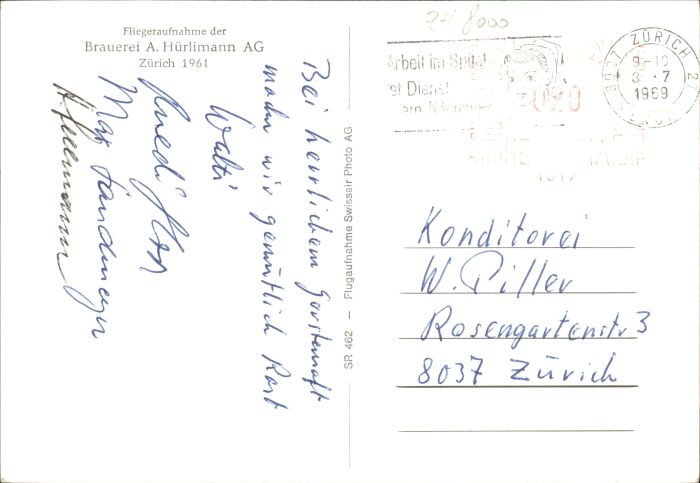 Fliegeraufnahme der
Brauerei A. Hürlimann AG
Zürich 1961
Bei herrlichem Gerstensaft
machen wir gemütlich Rast
Walti
Max
SR 462 — Flugaufnahme Swissair Photo AG
24 8000
Arbeit im Spital
ist Dienst
am Nächsten
8027 ZÜRICH 27
3. 7
1969
Konditorei
W. Piller
Rosengartenstr 3
8037 Zürich